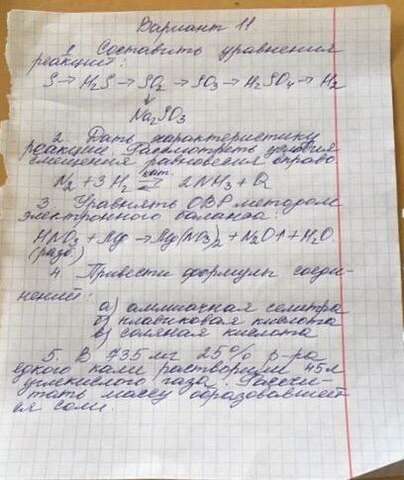 Вариант 11
1. Составить уравнения
реакций:
S → H2S → SO2 → SO3 → H2SO4 → H2
↓
Na2SO3
2. Дать характеристику
реакции. Рассмотреть условия
смещения равновесия вправо
N2 + 3H2 ⇄ 2NH3 + Q
кат.
3. Уравнять ОВР методом
электронного баланса:
HNO3 + Mg → Mg(NO3)2 + N2O↑ + H2O
(разб.)
4. Привести формулы соеди-
нений:
а) аммиачная селитра
б) плавиковая кислота
в) соляная кислота
5. В 735 мг 25% р-ра
едкого кали растворили 45л
углекислого газа. Рассчи-
тать массу образовавшей-
ся соли.